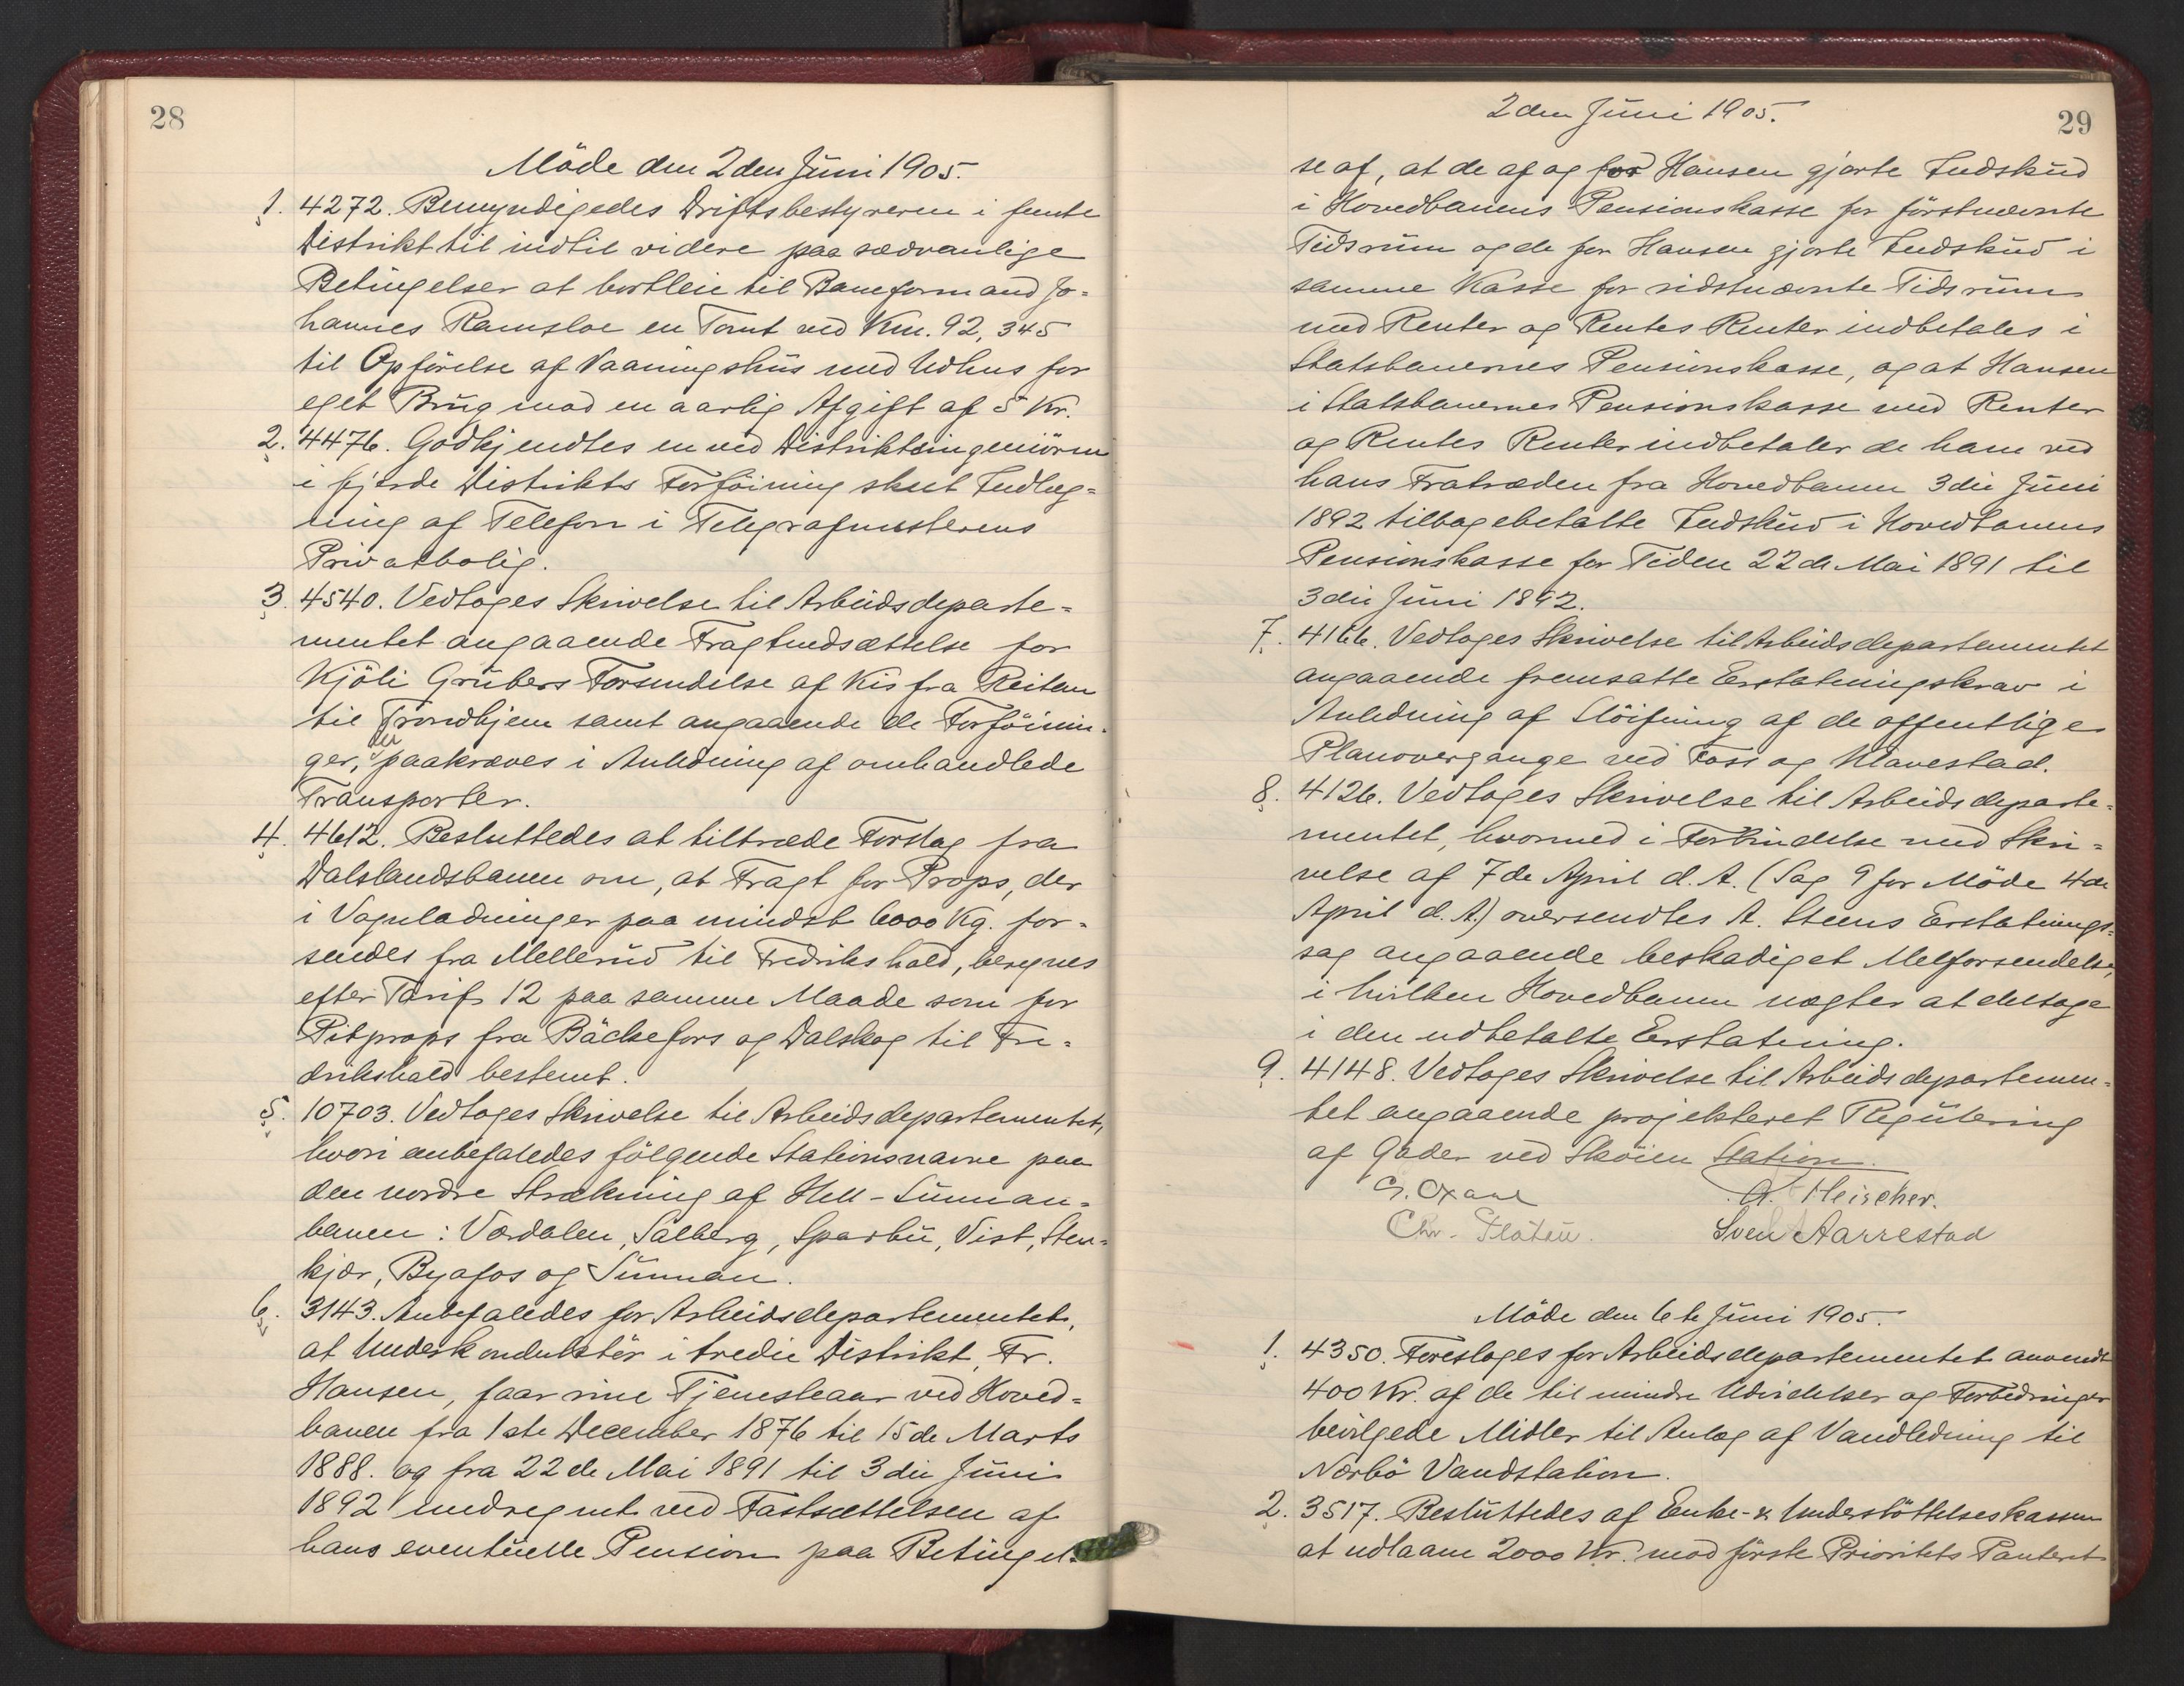 28
Möde den 2den Juni 1905.
1. 4272. Bemyndigedes Driftsbestyreren i femte
Distrikt til indtil videre paa sædvanlige
Betingelser at bortleie til Baneformand Jo=
hannes Ramsloe en Tomt ved Km. 92,345
til Opförelse af Vaaningshus med Udhus for
eget Brug mod en aarlig Afgift af 5 Kr.
2. 4476. Godkjendtes en ved Distriktsingeniören
i fjerde Distrikts Forföining skeet Indlæg=
ning af Telefon i Telegrafmesterens
Privatbolig.
3. 4540. Vedtoges Skrivelse til Arbeidsdeparte=
mentet angaaende Fragtnedsættelse for
Kjöli Grubers Forsendelse af Kis fra Reitan
til Trondhjem samt angaaende de Forföinin=
ger, der paakræves i Anledning af omhandlede
Transporter.
4. 4612. Besluttedes at tiltræde Forslag fra
Dalslandsbanen om, at Fragt for Props, der
i Vognladninger paa mindst 6000 Kg. for=
sendes fra Mellerud til Fredrikshald, beregnes
efter Tarif 12 paa samme Maade som for
Pitprops fra Bäckefors og Dalskog til Fre=
drikshald bestemt.
5. 10703. Vedtoges Skrivelse til Arbeidsdepartementet,
hvori anbefaledes fölgende Stationsnavne paa
den nordre Strækning af Hell-Sunnan=
banen: Værdalen, Salberg, Sparbu, Vist, Sten=
kjær, Byafos og Sunnan.
6. 3143. Anbefaledes for Arbeidsdepartementet,
at Underkonduktör i tredie Distrikt, Fr.
Hansen, faar sine Tjenesteaar ved Hoved=
banen fra 1ste December 1876 til 15de Marts
1888. og fra 22de Mai 1891 til 3die Juni
1892 medregnet ved Fastsættelsen af
hans eventuelle Pension paa Betingel=
2den Juni 1905.
29
se af, at de af og for Hansen gjorte Indskud
i Hovedbanens Pensionskasse for förstnævnte
Tidsrum og de for Hansen gjorte Indskud i
samme Kasse for sidstnævnte Tidsrum
med Renter og Rentes Renter indbetales i
Statsbanernes Pensionskasse, og at Hansen
i Statsbanernes Pensionskasse med Renter
og Rentes Renter indbetaler de ham ved
hans Fratræden fra Hovedbanen 3die Juni
1892 tilbagebetalte Indskud i Hovedbanens
Pensionskasse for Tiden 22de Mai 1891 til
3die Juni 1892.
7. 4166. Vedtoges Skrivelse til Arbeidsdepartementet
angaaende fremsatte Erstatningskrav i
Anledning af Slöifning af de offentlige
Planovergange ved Foss og Klavestad.
8. 4126. Vedtoges Skrivelse til Arbeidsdeparte=
mentet, hvormed i Forbindelse med Skri=
velse af 7de April d. A. (Sag 9 for Möde 4de
April d. A.) oversendtes A. Steens Erstatnings=
sag angaaende beskadiget Melforsendelse,
i hvilken Hovedbanen nægter at deltage
i den udbetalte Erstatning.
9. 4148. Vedtoges Skrivelse til Arbeidsdepartemen=
tet angaaende projekteret Regulering
af Gader ved Sköien Station.
Chr. Platou.
Sven Aarrestad
Möde den 6te Juni 1905.
1. 4350. Foresloges for Arbeidsdepartementet anvendt
400 Kr. af de til mindre Udvidelser og Forbedringer
bevilgede Midler til Anlæg af Vandledning til
Nærbö Vandstation.
2. 3517. Besluttedes af Enke- & Understöttelseskassen
at udlaane 2000 Kr. mod förste Prioritets Panteret